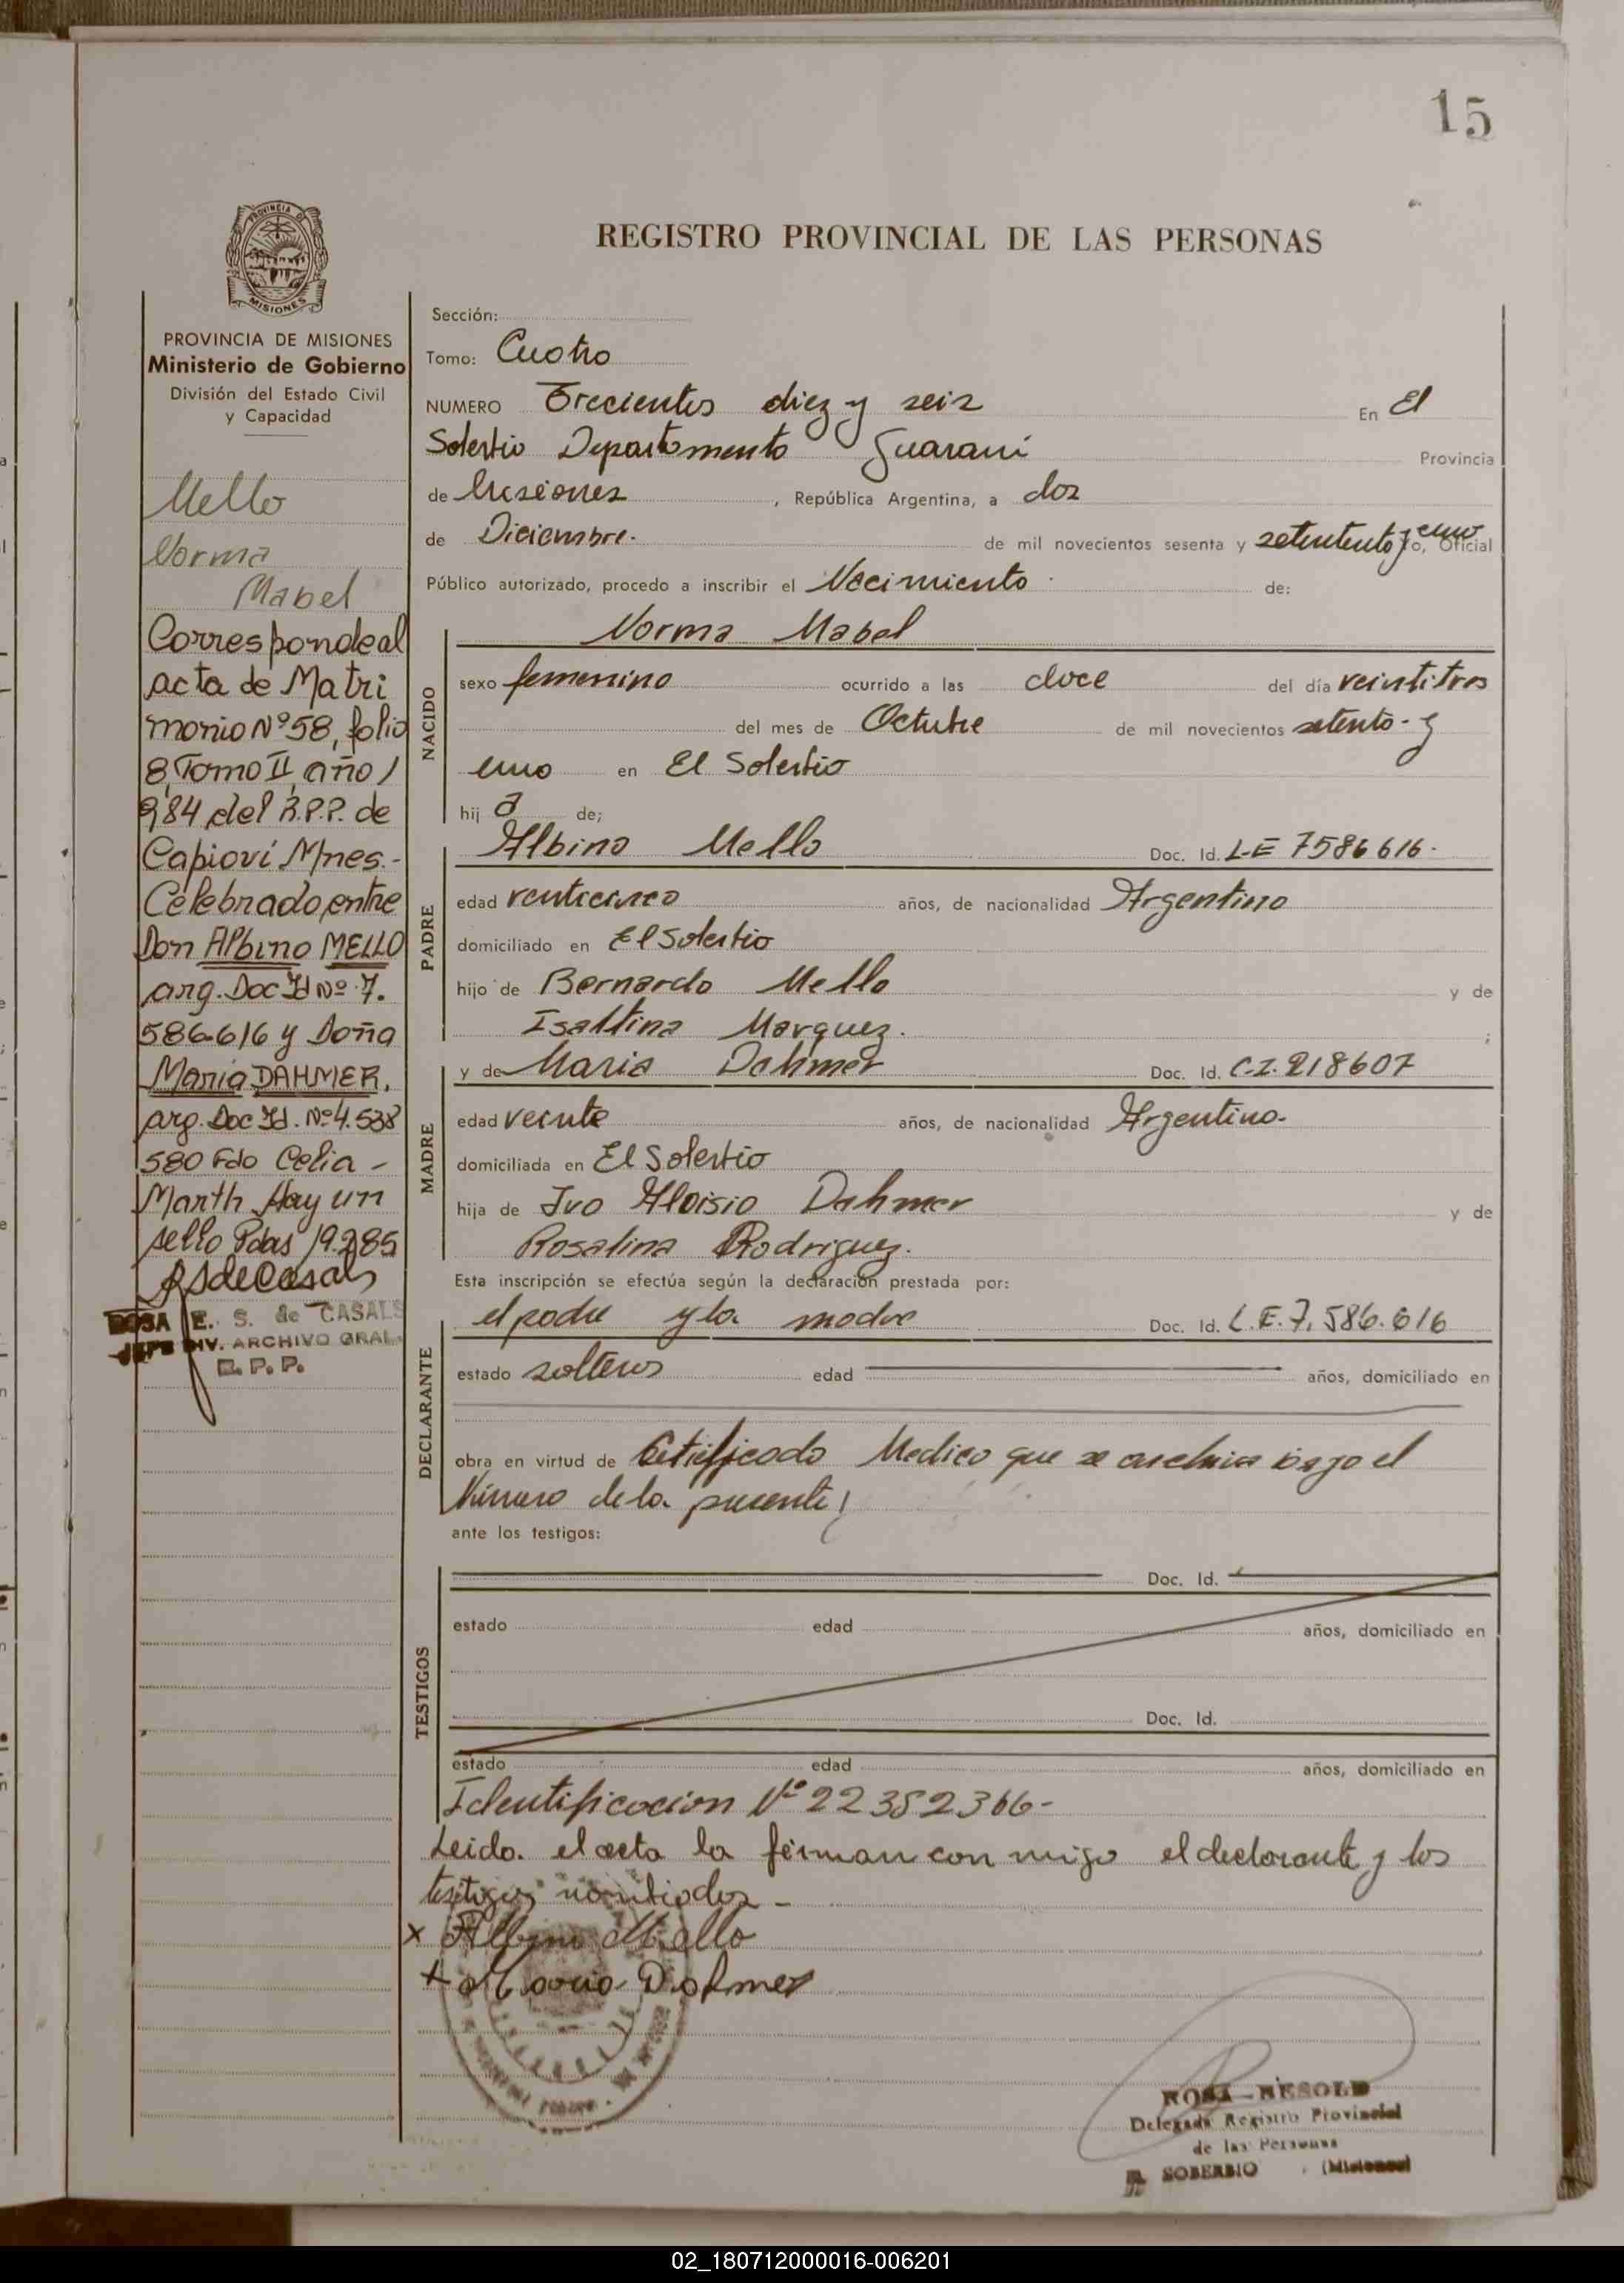 15
PROVINCIA DE
MISIONES
REGISTRO PROVINCIAL DE LAS PERSONAS
PROVINCIA DE MISIONES
Ministerio de Gobierno
División del Estado Civil
y Capacidad
Mello
Norma
Mabel
Corresponde al
acta de Matri
monio Nº 58, folio
8, Tomo II, año 1
984 del R.P.P. de
Capioví Mnes.-
Celebrado, entre
Don Albino MELLO
arg. Doc Id Nº 7.
586.616 y Doña
Maria DAHMER,
arg. Doc Id. Nº 4.538
580 Fdo Celia -
Marth Hay un
sello Pdas 19.2.85
RSdeCasals
ROSA E. S. de CASALS
JEFE DIV. ARCHIVO GRAL.
R. P. P.
Sección:
Tomo: Cuatro
NUMERO Trecientos diez y seis En El
Soberbio Departamento Guarani Provincia
de Misiones , República Argentina, a dos
de Diciembre. de mil novecientos sesenta y , Oficial
Público autorizado, procedo a inscribir el Nacimiento de:
Norma Mabel
NACIDO
sexo femenino ocurrido a las doce del día veintitres
del mes de Octubre de mil novecientos setenta - y
uno en El Soberbio
hij a de;
PADRE
Albino Mello Doc. Id. L-E 7586616.
edad venticinco años, de nacionalidad Argentino
domiciliado en El Soberbio
hijo de Bernardo Mello y de
Isaltina Marquez. ;
MADRE
y de Maria Dahmer Doc. Id. C.I. 218607
edad veinte años, de nacionalidad Argentina.
domiciliada en El Soberbio
hija de Ivo Aloisio Dahmer y de
Rosalina Rodriguez.
Esta inscripción se efectúa según la declaración prestada por:
DECLARANTE
el padre y la madre Doc. Id. L.E. 7.586.616
estado solteros edad años, domiciliado en
obra en virtud de Certificado Medico que se archiva bajo el
Número de la presente;
ante los testigos:
TESTIGOS
Doc. Id.
estado edad años, domiciliado en
Doc. Id.
estado edad años, domiciliado en
Identificacion Nº 22352366-
Leida el acta la firman con migo el declarante y los
testigos
x Albino Mello
x Maria Dahmer
ROSA RESOLD
Delegada Registro Provincial
de las Personas
EL SOBERBIO (Misiones)
02_180712000016-006201